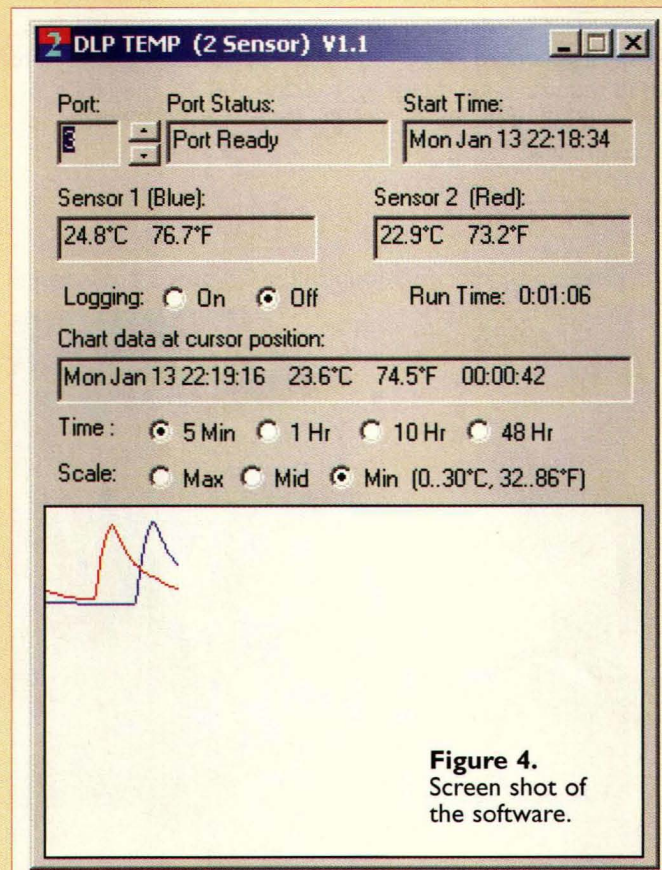 DLP TEMP (2 Sensor) V1.1
Port: Port Status: Start Time:
Port Ready Mon Jan 13 22:18:34
Sensor 1 (Blue): Sensor 2 (Red):
24.8°C 76.7°F 22.9°C 73.2°F
Logging: On Off Run Time: 0:01:06
Chart data at cursor position:
Mon Jan 13 22:19:16 23.6°C 74.5°F 00:00:42
Time : 5 Min 1 Hr 10 Hr 48 Hr
Scale: Max Mid Min (0..30°C, 32..86°F)
Figure 4.
Screen shot of
the software.